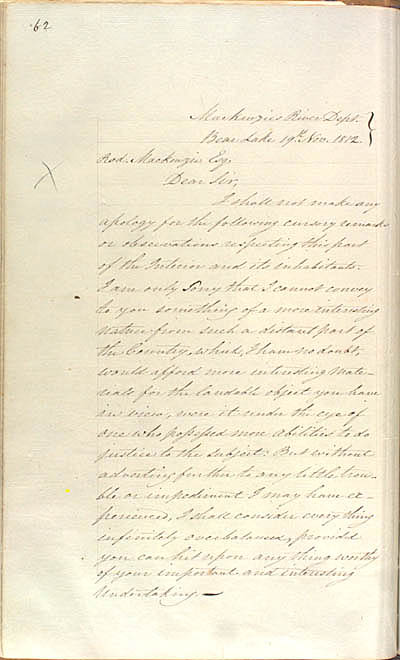 62
Mackenzies River Dept.
Bear Lake 19th. Nov. 1812.
Rod. Mackenzie Esq
Dear Sir,
I shall not make any
apology for the following cursory remarks
or observations respecting this part
of the Interior and its inhabitants.
I am only Sorry that I cannot convey
to you something of a more interesting
nature from such a distant part of
the Country, which, I have no doubt,
would afford more interesting Mate-
rials for the laudable object you have
in view, were it under the eye of
one who possessed more abilities to do
justice to the subject. But without
adverting further to any little trou-
ble or impediment I may have ex-
perienced, I shall consider every thing
infinitely overbalanced, provided
you can hit upon any thing worthy
of your important and interesting
Undertaking.—